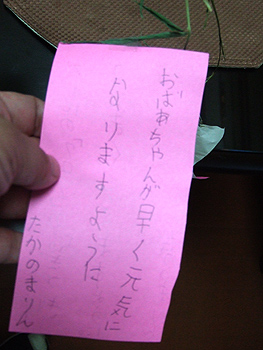 おばあちゃんが早く元気に
なりますように
たかのまりん